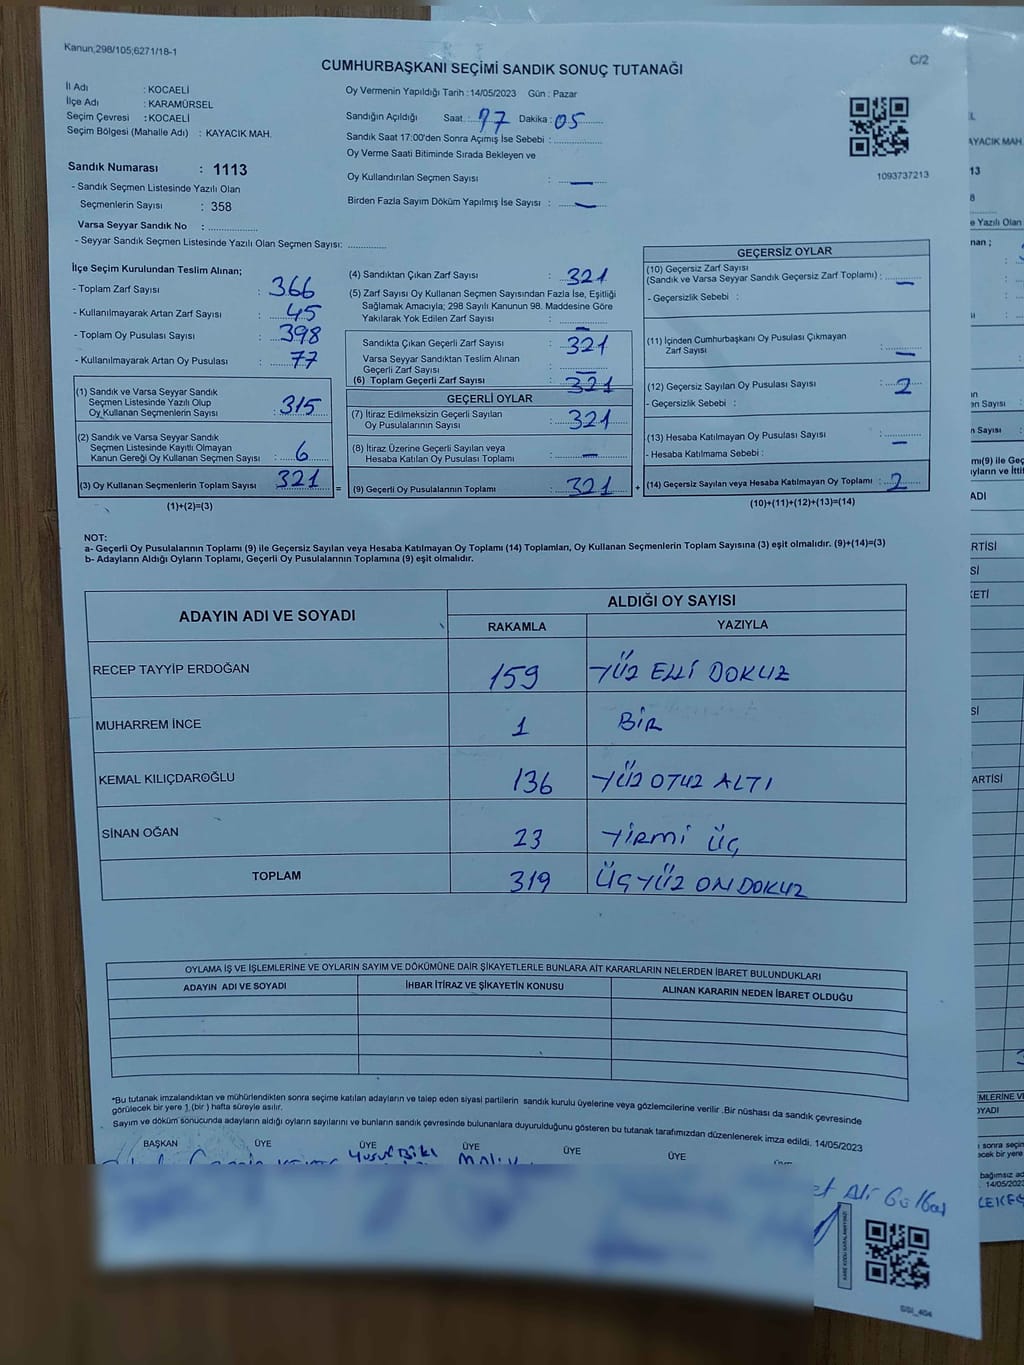 Kanun,298/105;6271/18-1
C/2
CUMHURBAŞKANI SEÇİMİ SANDIK SONUÇ TUTANAĞI
İl Adı : KOCAELİ
İlçe Adı : KARAMÜRSEL
Seçim Çevresi : KOCAELİ
Seçim Bölgesi (Mahalle Adı) : KAYACIK MAH.
Sandık Numarası : 1113
- Sandık Seçmen Listesinde Yazılı Olan
Seçmenlerin Sayısı : 358
Varsa Seyyar Sandık No :
- Seyyar Sandık Seçmen Listesinde Yazılı Olan Seçmen Sayısı:
Oy Vermenin Yapıldığı Tarih :14/05/2023 Gün : Pazar
Sandığın Açıldığı Saat : 17 Dakika : 05
Sandık Saat 17:00'den Sonra Açımış İse Sebebi :
Oy Verme Saati Bitiminde Sırada Bekleyen ve
Oy Kullandırılan Seçmen Sayısı : —
Birden Fazla Sayım Döküm Yapılmış İse Sayısı : —
1093737213
İlçe Seçim Kurulundan Teslim Alınan;
- Toplam Zarf Sayısı : 366
- Kullanılmayarak Artan Zarf Sayısı : 45
- Toplam Oy Pusulası Sayısı : 398
- Kullanılmayarak Artan Oy Pusulası : 77
(1) Sandık ve Varsa Seyyar Sandık
Seçmen Listesinde Yazılı Olup
Oy Kullanan Seçmenlerin Sayısı : 315
(2) Sandık ve Varsa Seyyar Sandık
Seçmen Listesinde Kayıtlı Olmayan
Kanun Gereği Oy Kullanan Seçmen Sayısı : 6
(3) Oy Kullanan Seçmenlerin Toplam Sayısı : 321
(1)+(2)=(3)
(4) Sandıktan Çıkan Zarf Sayısı : 321
(5) Zarf Sayısı Oy Kullanan Seçmen Sayısından Fazla İse, Eşitliği
Sağlamak Amacıyla; 298 Sayılı Kanunun 98. Maddesine Göre
Yakılarak Yok Edilen Zarf Sayısı : —
Sandıkta Çıkan Geçerli Zarf Sayısı : 321
Varsa Seyyar Sandıktan Teslim Alınan
Geçerli Zarf Sayısı : —
(6) Toplam Geçerli Zarf Sayısı : 321
GEÇERLİ OYLAR
(7) İtiraz Edilmeksizin Geçerli Sayılan
Oy Pusulalarının Sayısı : 321
(8) İtiraz Üzerine Geçerli Sayılan veya
Hesaba Katılan Oy Pusulası Toplamı : —
= (9) Geçerli Oy Pusulalarının Toplamı : 321 +
GEÇERSİZ OYLAR
(10) Geçersiz Zarf Sayısı
(Sandık ve Varsa Seyyar Sandık Geçersiz Zarf Toplamı) : —
- Geçersizlik Sebebi :
(11) İçinden Cumhurbaşkanı Oy Pusulası Çıkmayan
Zarf Sayısı : —
(12) Geçersiz Sayılan Oy Pusulası Sayısı : 2
- Geçersizlik Sebebi :
(13) Hesaba Katılmayan Oy Pusulası Sayısı : —
- Hesaba Katılmama Sebebi :
(14) Geçersiz Sayılan veya Hesaba Katılmayan Oy Toplamı : 2
(10)+(11)+(12)+(13)=(14)
NOT:
a- Geçerli Oy Pusulalarının Toplamı (9) ile Geçersiz Sayılan veya Hesaba Katılmayan Oy Toplamı (14) Toplamları, Oy Kullanan Seçmenlerin Toplam Sayısına (3) eşit olmalıdır. (9)+(14)=(3)
b- Adayların Aldığı Oyların Toplamı, Geçerli Oy Pusulalarının Toplamına (9) eşit olmalıdır.
ADAYIN ADI VE SOYADI ALDIĞI OY SAYISI
RAKAMLA YAZIYLA
RECEP TAYYİP ERDOĞAN 159 YÜZ ELLİ DOKUZ
MUHARREM İNCE 1 BİR
KEMAL KILIÇDAROĞLU 136 YÜZ OTUZ ALTI
SİNAN OĞAN 23 YİRMİ ÜÇ
TOPLAM 319 ÜÇYÜZ ONDOKUZ
OYLAMA İŞ VE İŞLEMLERİNE VE OYLARIN SAYIM VE DÖKÜMÜNE DAİR ŞİKAYETLERLE BUNLARA AİT KARARLARIN NELERDEN İBARET BULUNDUKLARI
ADAYIN ADI VE SOYADI İHBAR İTİRAZ VE ŞİKAYETİN KONUSU ALINAN KARARIN NEDEN İBARET OLDUĞU
*Bu tutanak imzalandıktan ve mühürlendikten sonra seçime katılan adayların ve talep eden siyasi partilerin sandık kurulu üyelerine veya gözlemcilerine verilir .Bir nüshası da sandık çevresinde
görülecek bir yere 1 (bir ) hafta süreyle asılır.
Sayım ve döküm sonucunda adayların aldığı oyların sayılarını ve bunların sandık çevresinde bulunanlara duyurulduğunu gösteren bu tutanak tarafımızdan düzenlenerek imza edildi. 14/05/2023
BAŞKAN ÜYE ÜYE ÜYE ÜYE ÜYE
Ali
GSI_404
AYACIK MAH.
ARTİSİ